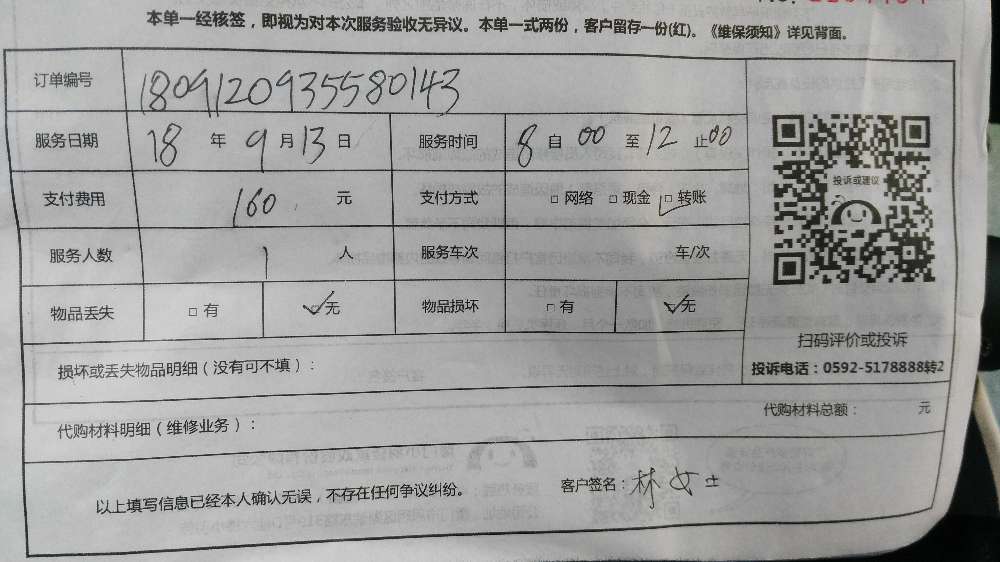 本单一经核签，即视为对本次服务验收无异议。本单一式两份，客户留存一份(红)。《维保须知》详见背面。
订单编号 180912093558 0143
服务日期 18 年 9 月 13 日 服务时间 8 自 00 至 12 止 00
支付费用 160 元 支付方式 □ 网络 □ 现金 ☑ 转账
服务人数 1 人 服务车次 车/次
物品丢失 □ 有 ☑ 无 物品损坏 □ 有 ☑ 无
投诉或建议
扫码评价或投诉
投诉电话：0592-5178888转2
损坏或丢失物品明细（没有可不填）：
代购材料总额： 元
代购材料明细（维修业务）：
以上填写信息已经本人确认无误，不存在任何争议纠纷。 客户签名：林女士